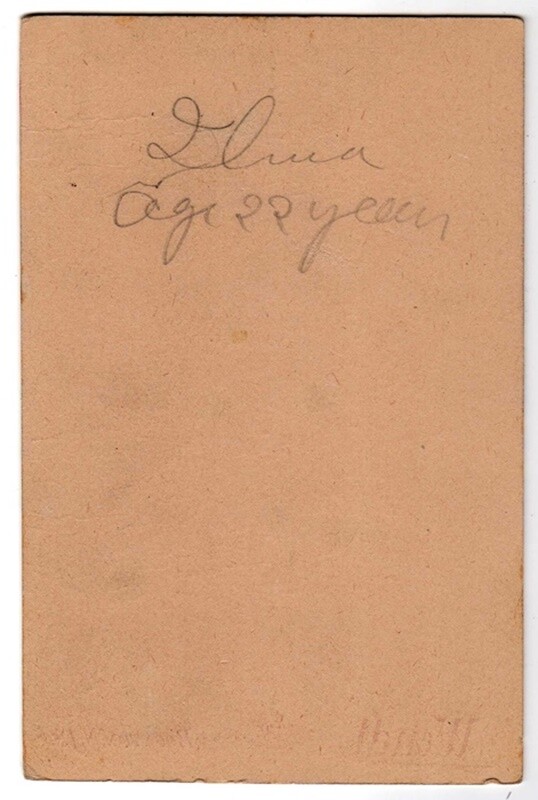 Elma
Age 22 years